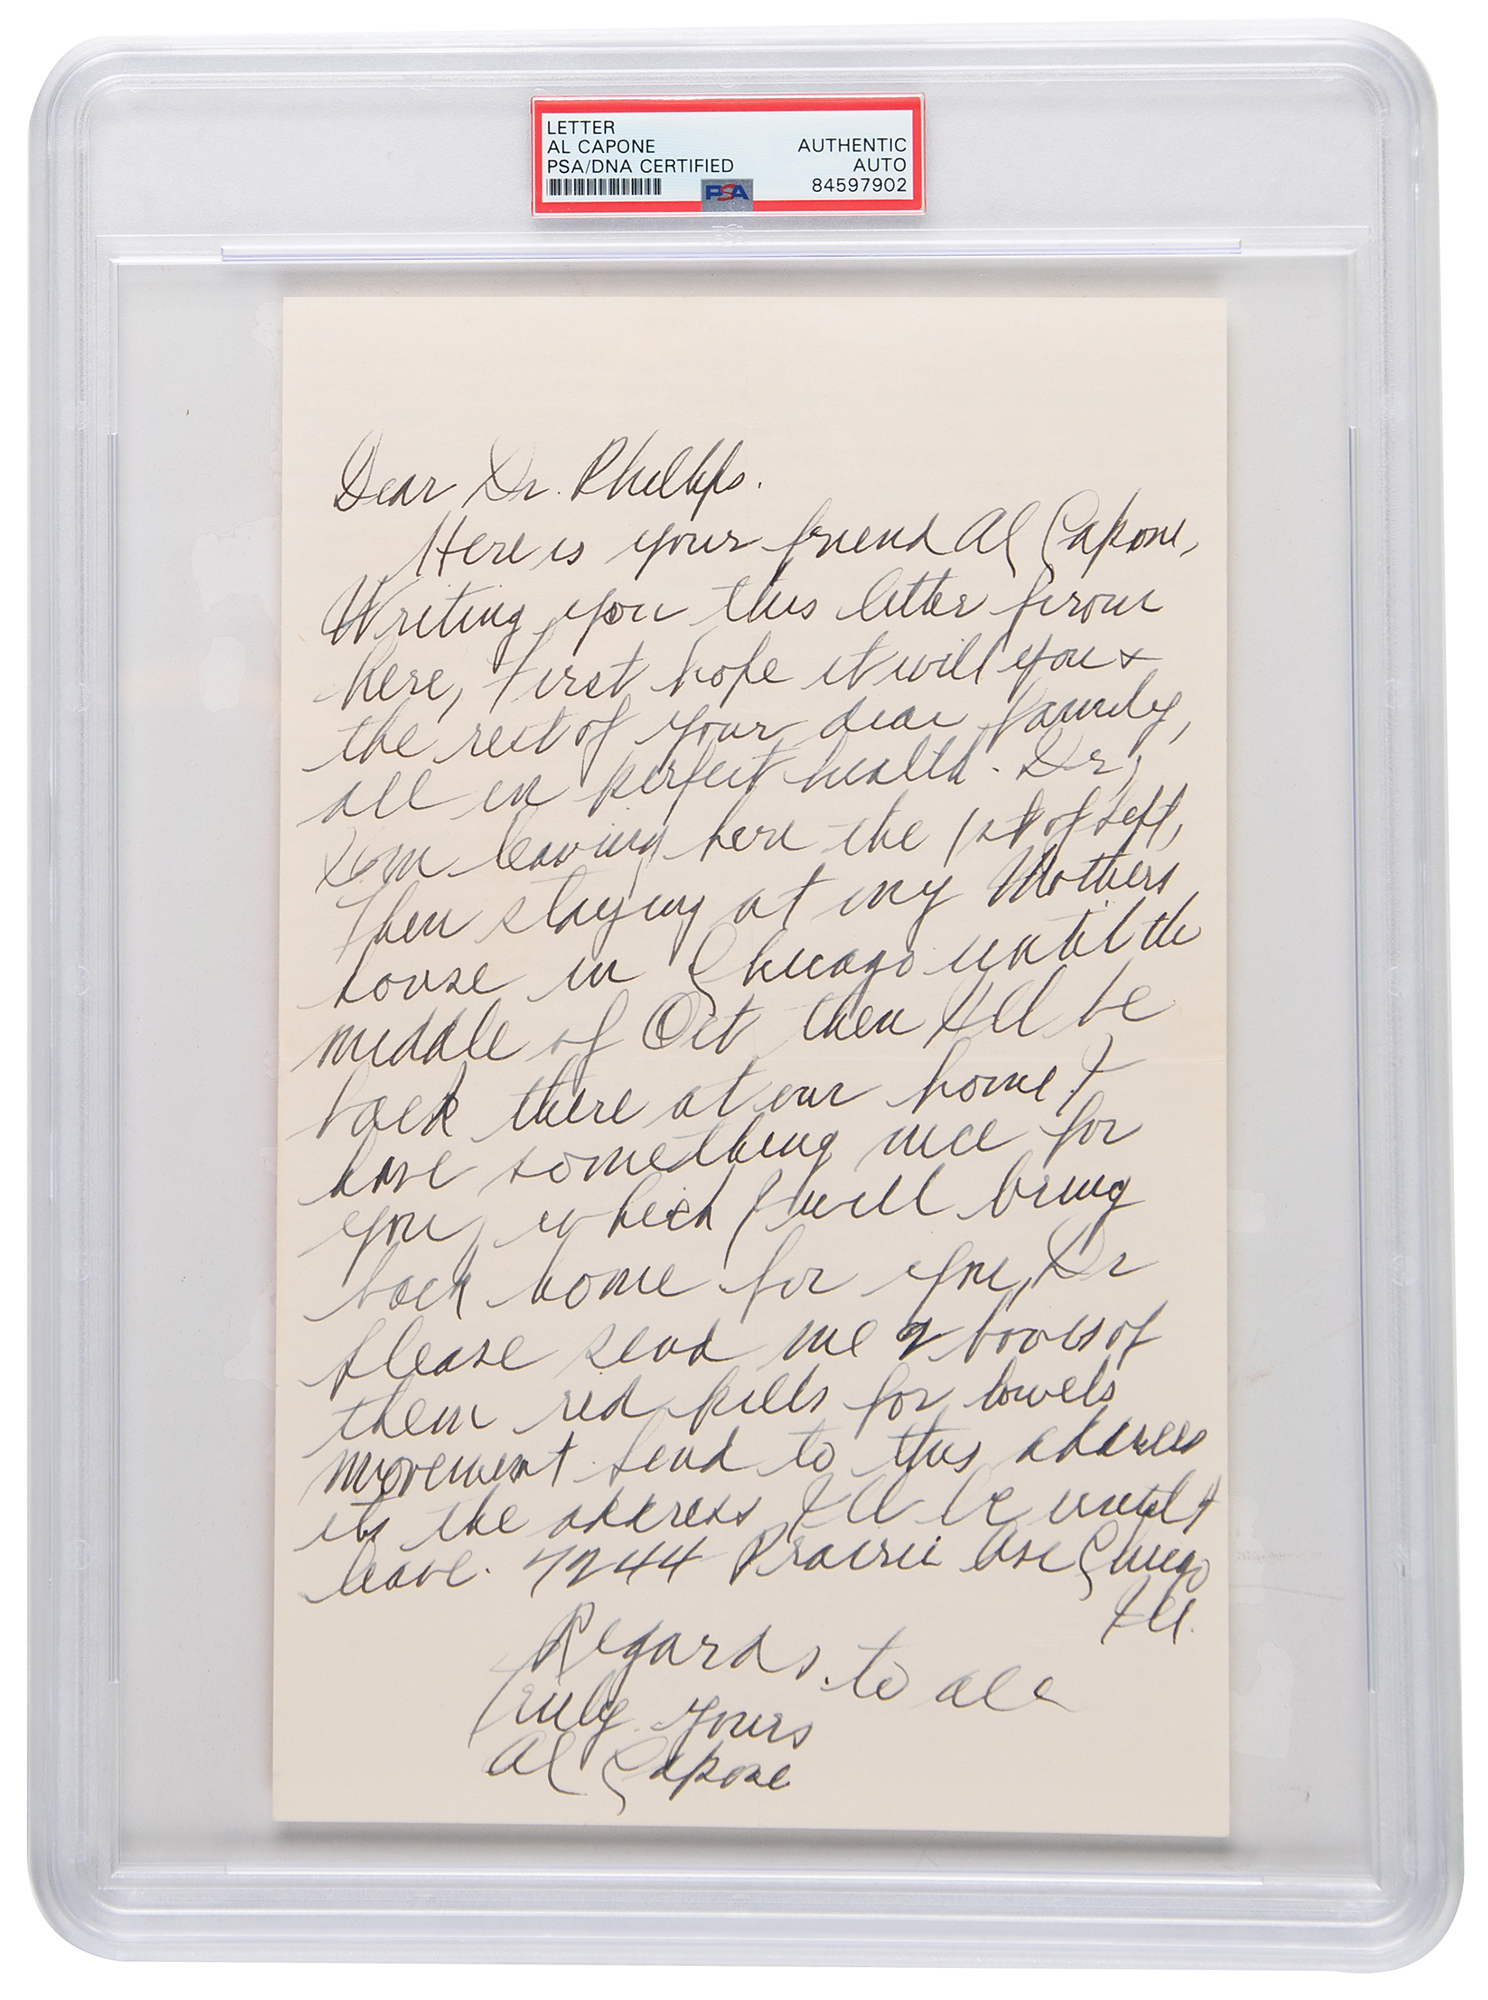 LETTER
AL CAPONE
PSA/DNA CERTIFIED
AUTHENTIC
AUTO
84597902
PSA
Dear Dr. Phillips.
Here is your friend Al Capone,
Writing you this letter from
here, First hope it will you &
the rest of your dear family,
all in perfect health. Dr,
I'm leaving here the 1st of Sept,
then staying at my Mothers
house in Chicago until the
middle of Oct then I'll be
back there at our home &
have something nice for
you, which I will bring
back home for you, Dr
please send me 2 boxes of
them red pills for bowels
movement send to this address
its the address I'll be until I
leave. 7244 Prairie Ave Chicago
Ill.
Regards to all
Truly yours
Al Capone